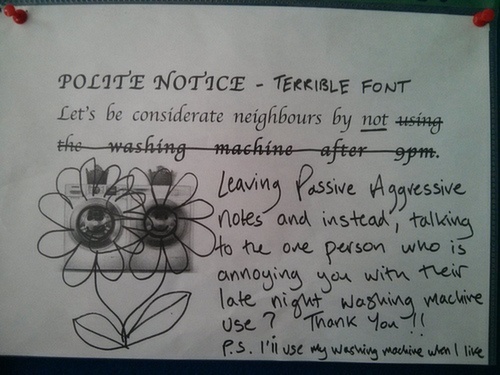 POLITE NOTICE - TERRIBLE FONT
Let's be considerate neighbours by not using
the washing machine after 9pm.
Leaving Passive Aggressive
notes and instead, talking
to the one person who is
annoying you with their
late night washing machine
use? Thank You!!
P.S. I'll use my washing machine when I like